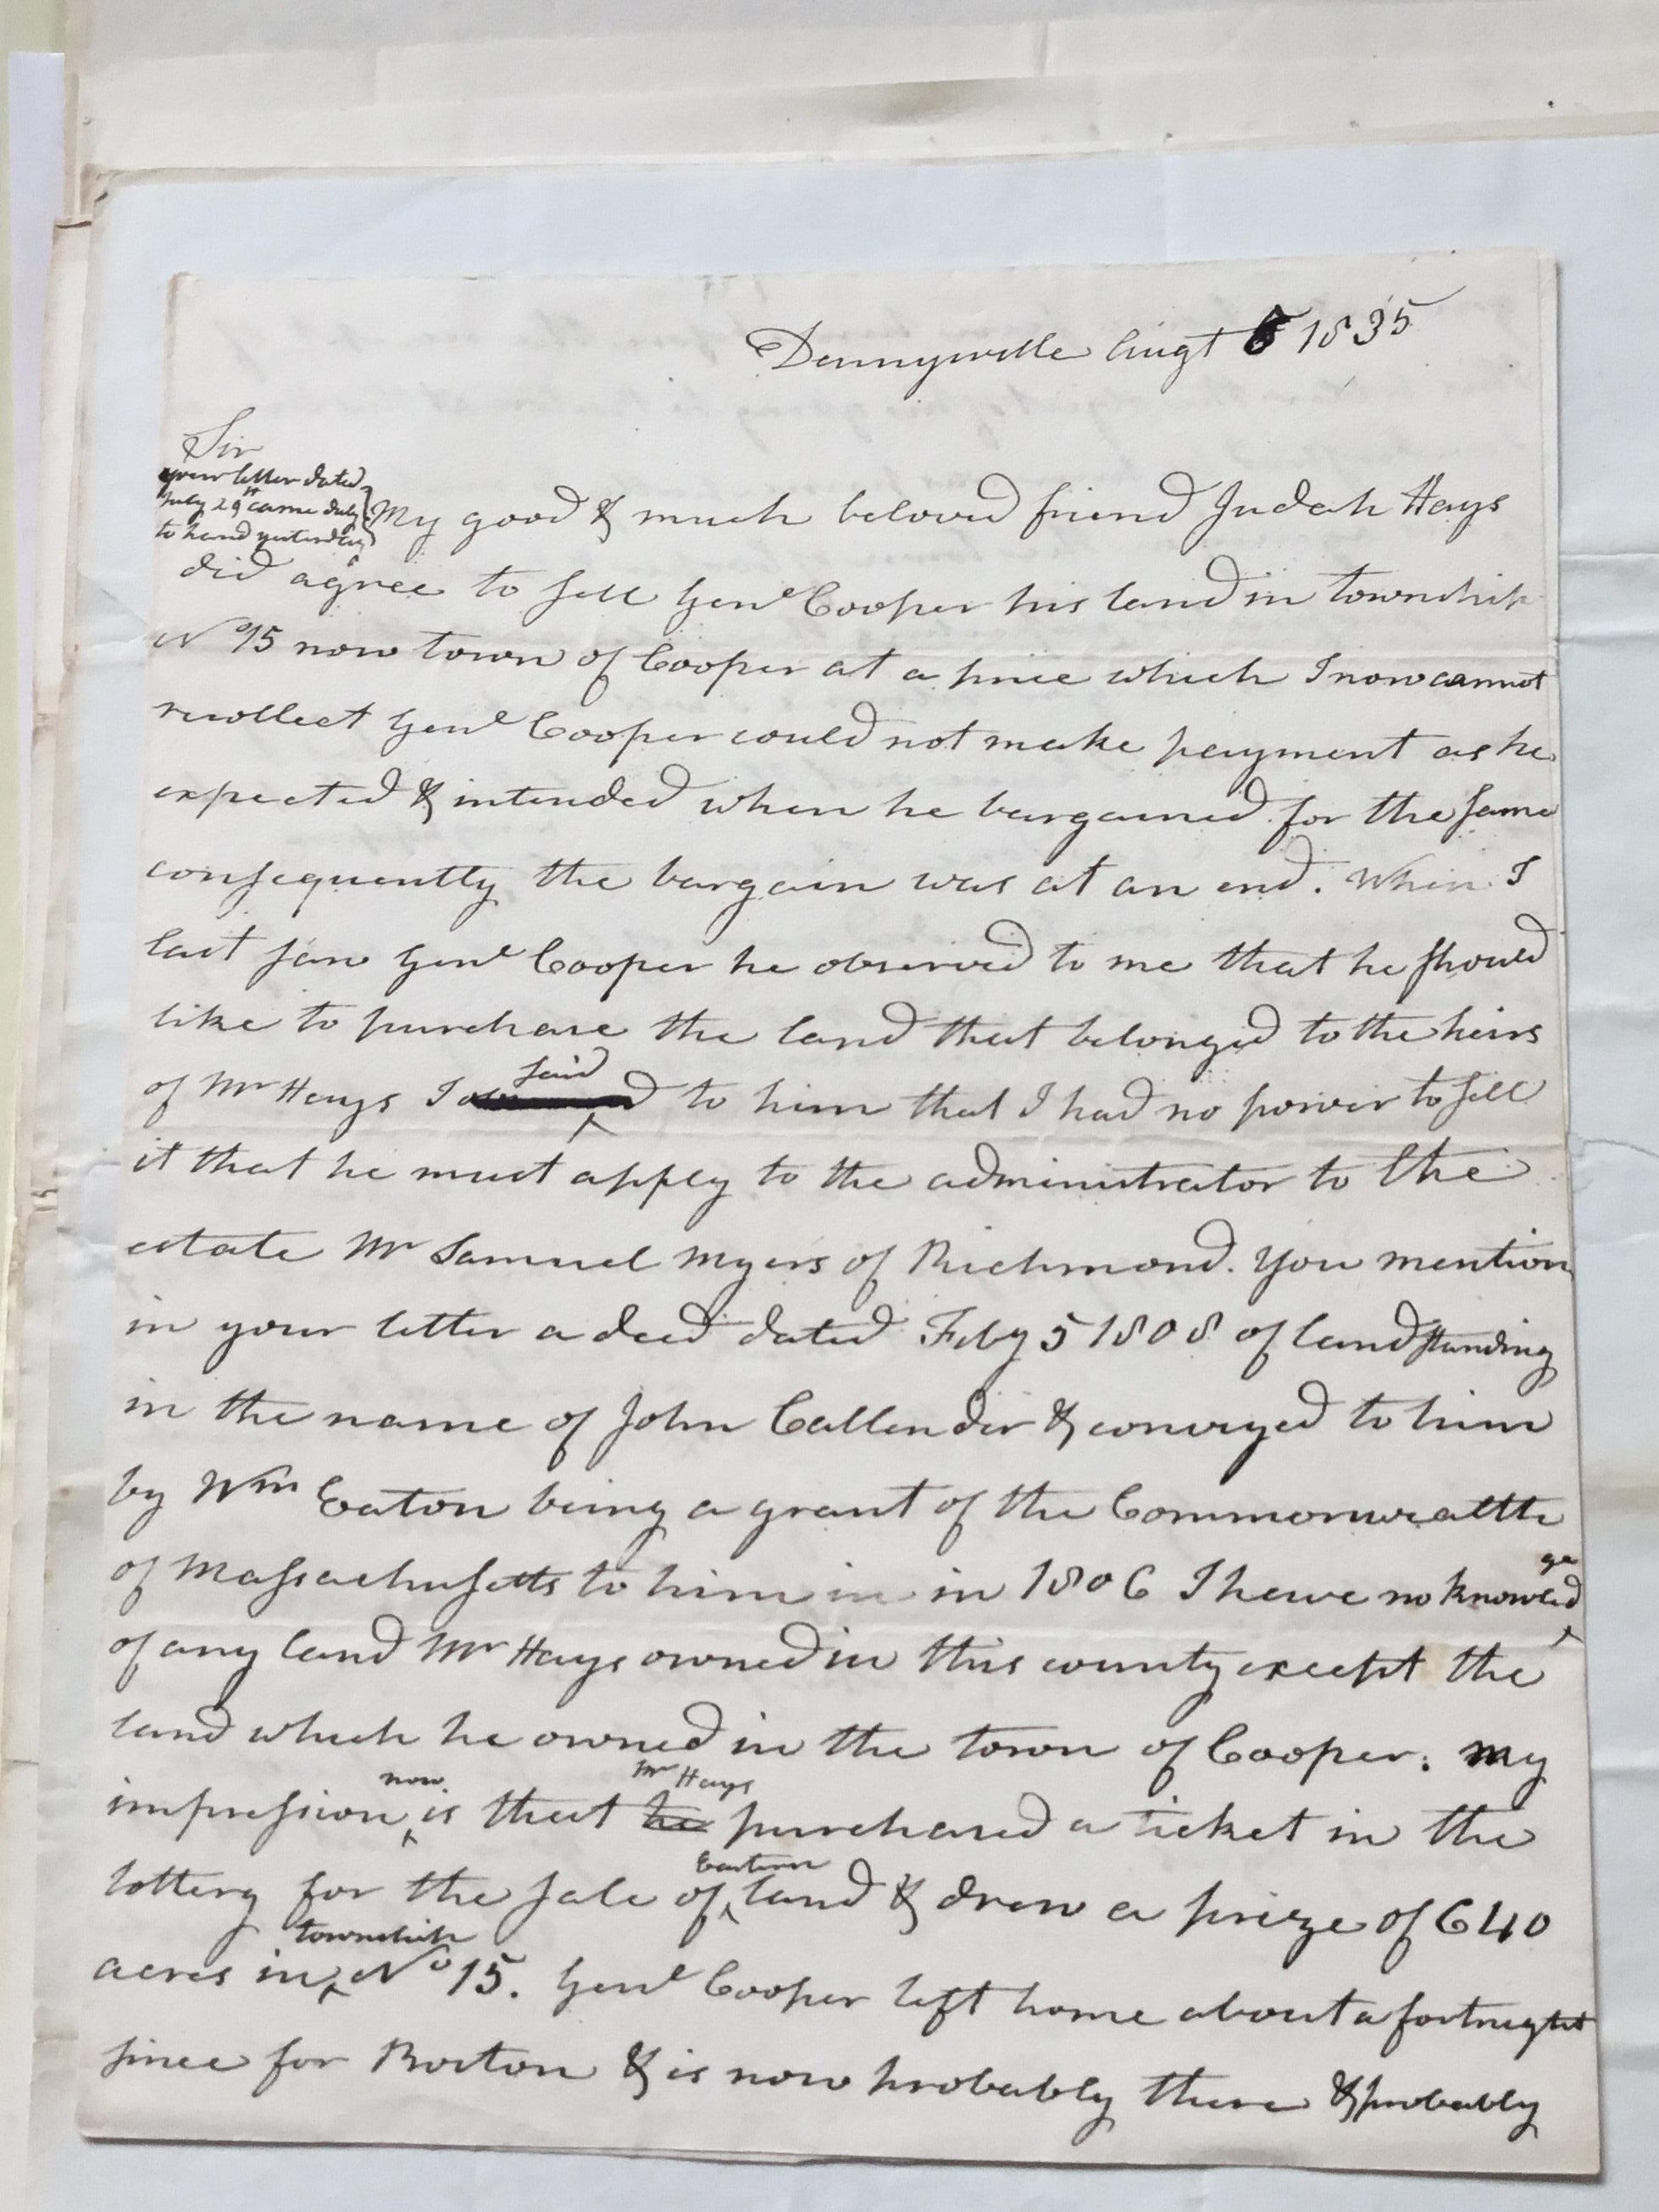 Dennysville Augt 6 1835
Sir
your letter dated
July 29th came duly
to hand yesterday
My good & much beloved friend Judah Hays
did agree to sell Genl Cooper his land in township
No 15 now town of Cooper at a price which I now cannot
recollect Genl Cooper could not make payment as he
expected & intended when he bargained for the same
consequently the bargain was at an end. When I
last saw Genl Cooper he observed to me that he should
like to purchase the land that belonged to the heirs
of Mr Hays I said to him that I had no power to sell
it that he must apply to the administrator to the
estate Mr Samuel Myers of Richmond. You mention
in your letter a deed dated Feby 5 1808 of land standing
in the name of John Callender & conveyed to him
by Wm Eaton being a grant of the Commonwealth
of Massachusetts to him in in 1806 I have no knowledge
of any land Mr Hays owned in this county except the
land which he owned in the town of Cooper. My
impression now is that he Mr Hays purchased a ticket in the
lottery for the sale of Eastern land & drew a prize of 640
acres in township No 15. Genl Cooper left home about a fortnight
since for Boston & is now probably there & probably